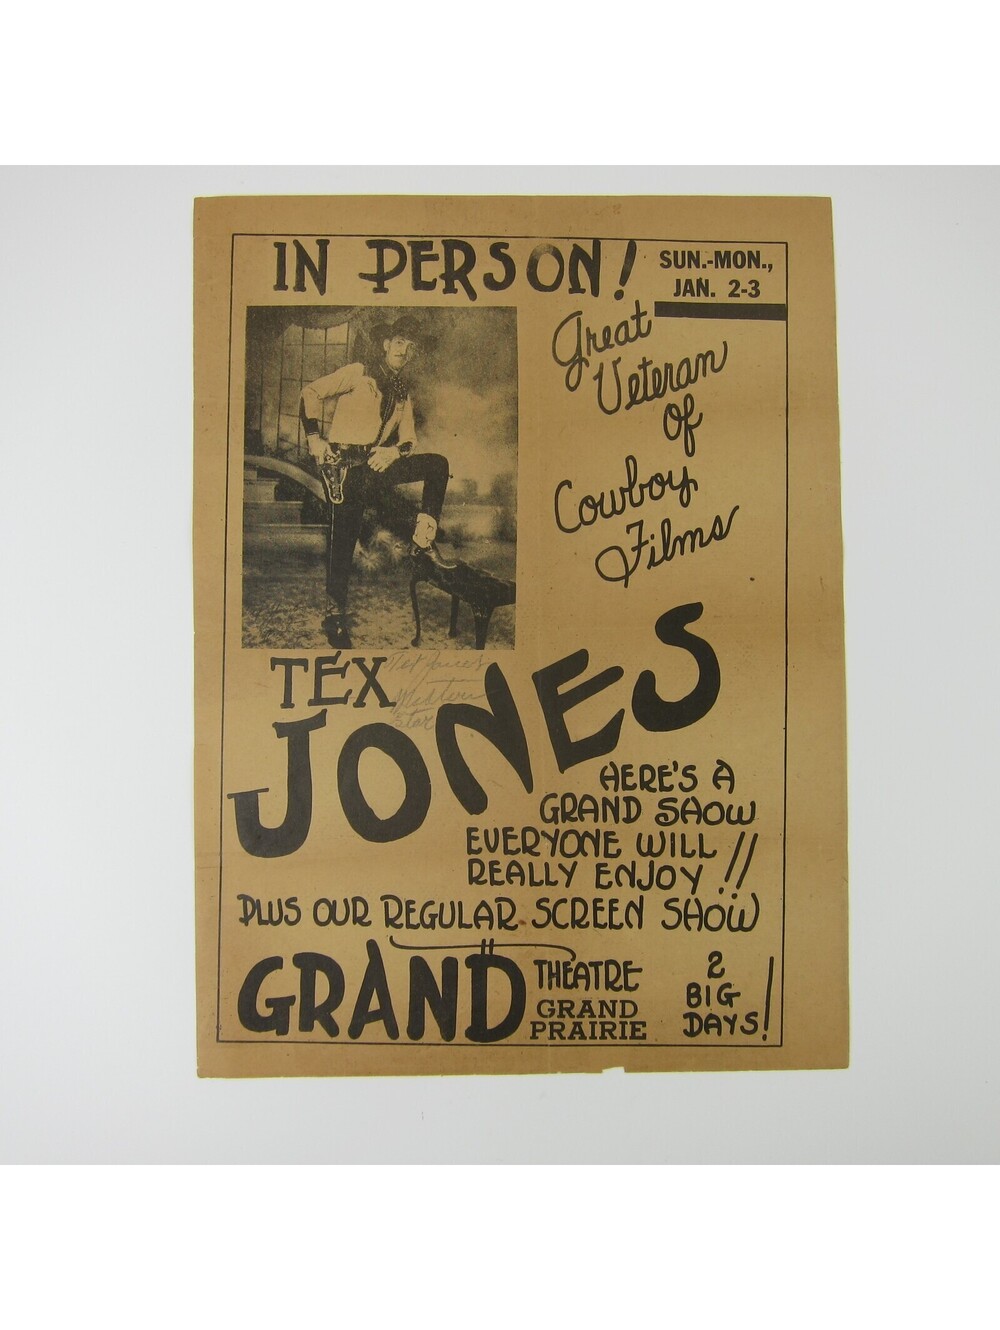 IN PERSON!
SUN.-MON.,
JAN. 2-3
Great
Veteran
of
Cowboy
Films
TEX
Tex Jones
Western
Star
JONES
HERE'S A
GRAND SHOW
EVERYONE WILL
REALLY ENJOY!!
PLUS OUR REGULAR SCREEN SHOW
GRAND THEATRE
GRAND
PRAIRIE
2
BIG
DAYS!